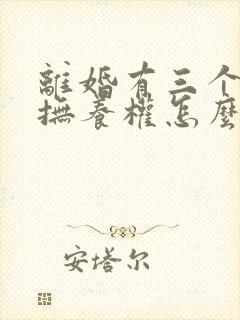 離婚有三个
撫養權怎麼
安塔尔